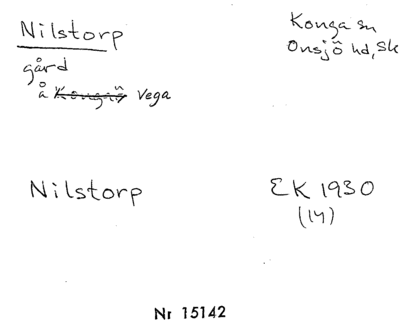 Nilstorp
Konga sn
Onsjö hd, Sk
gård
å Vega
Nilstorp
EK 1930
(14)
Nr 15142